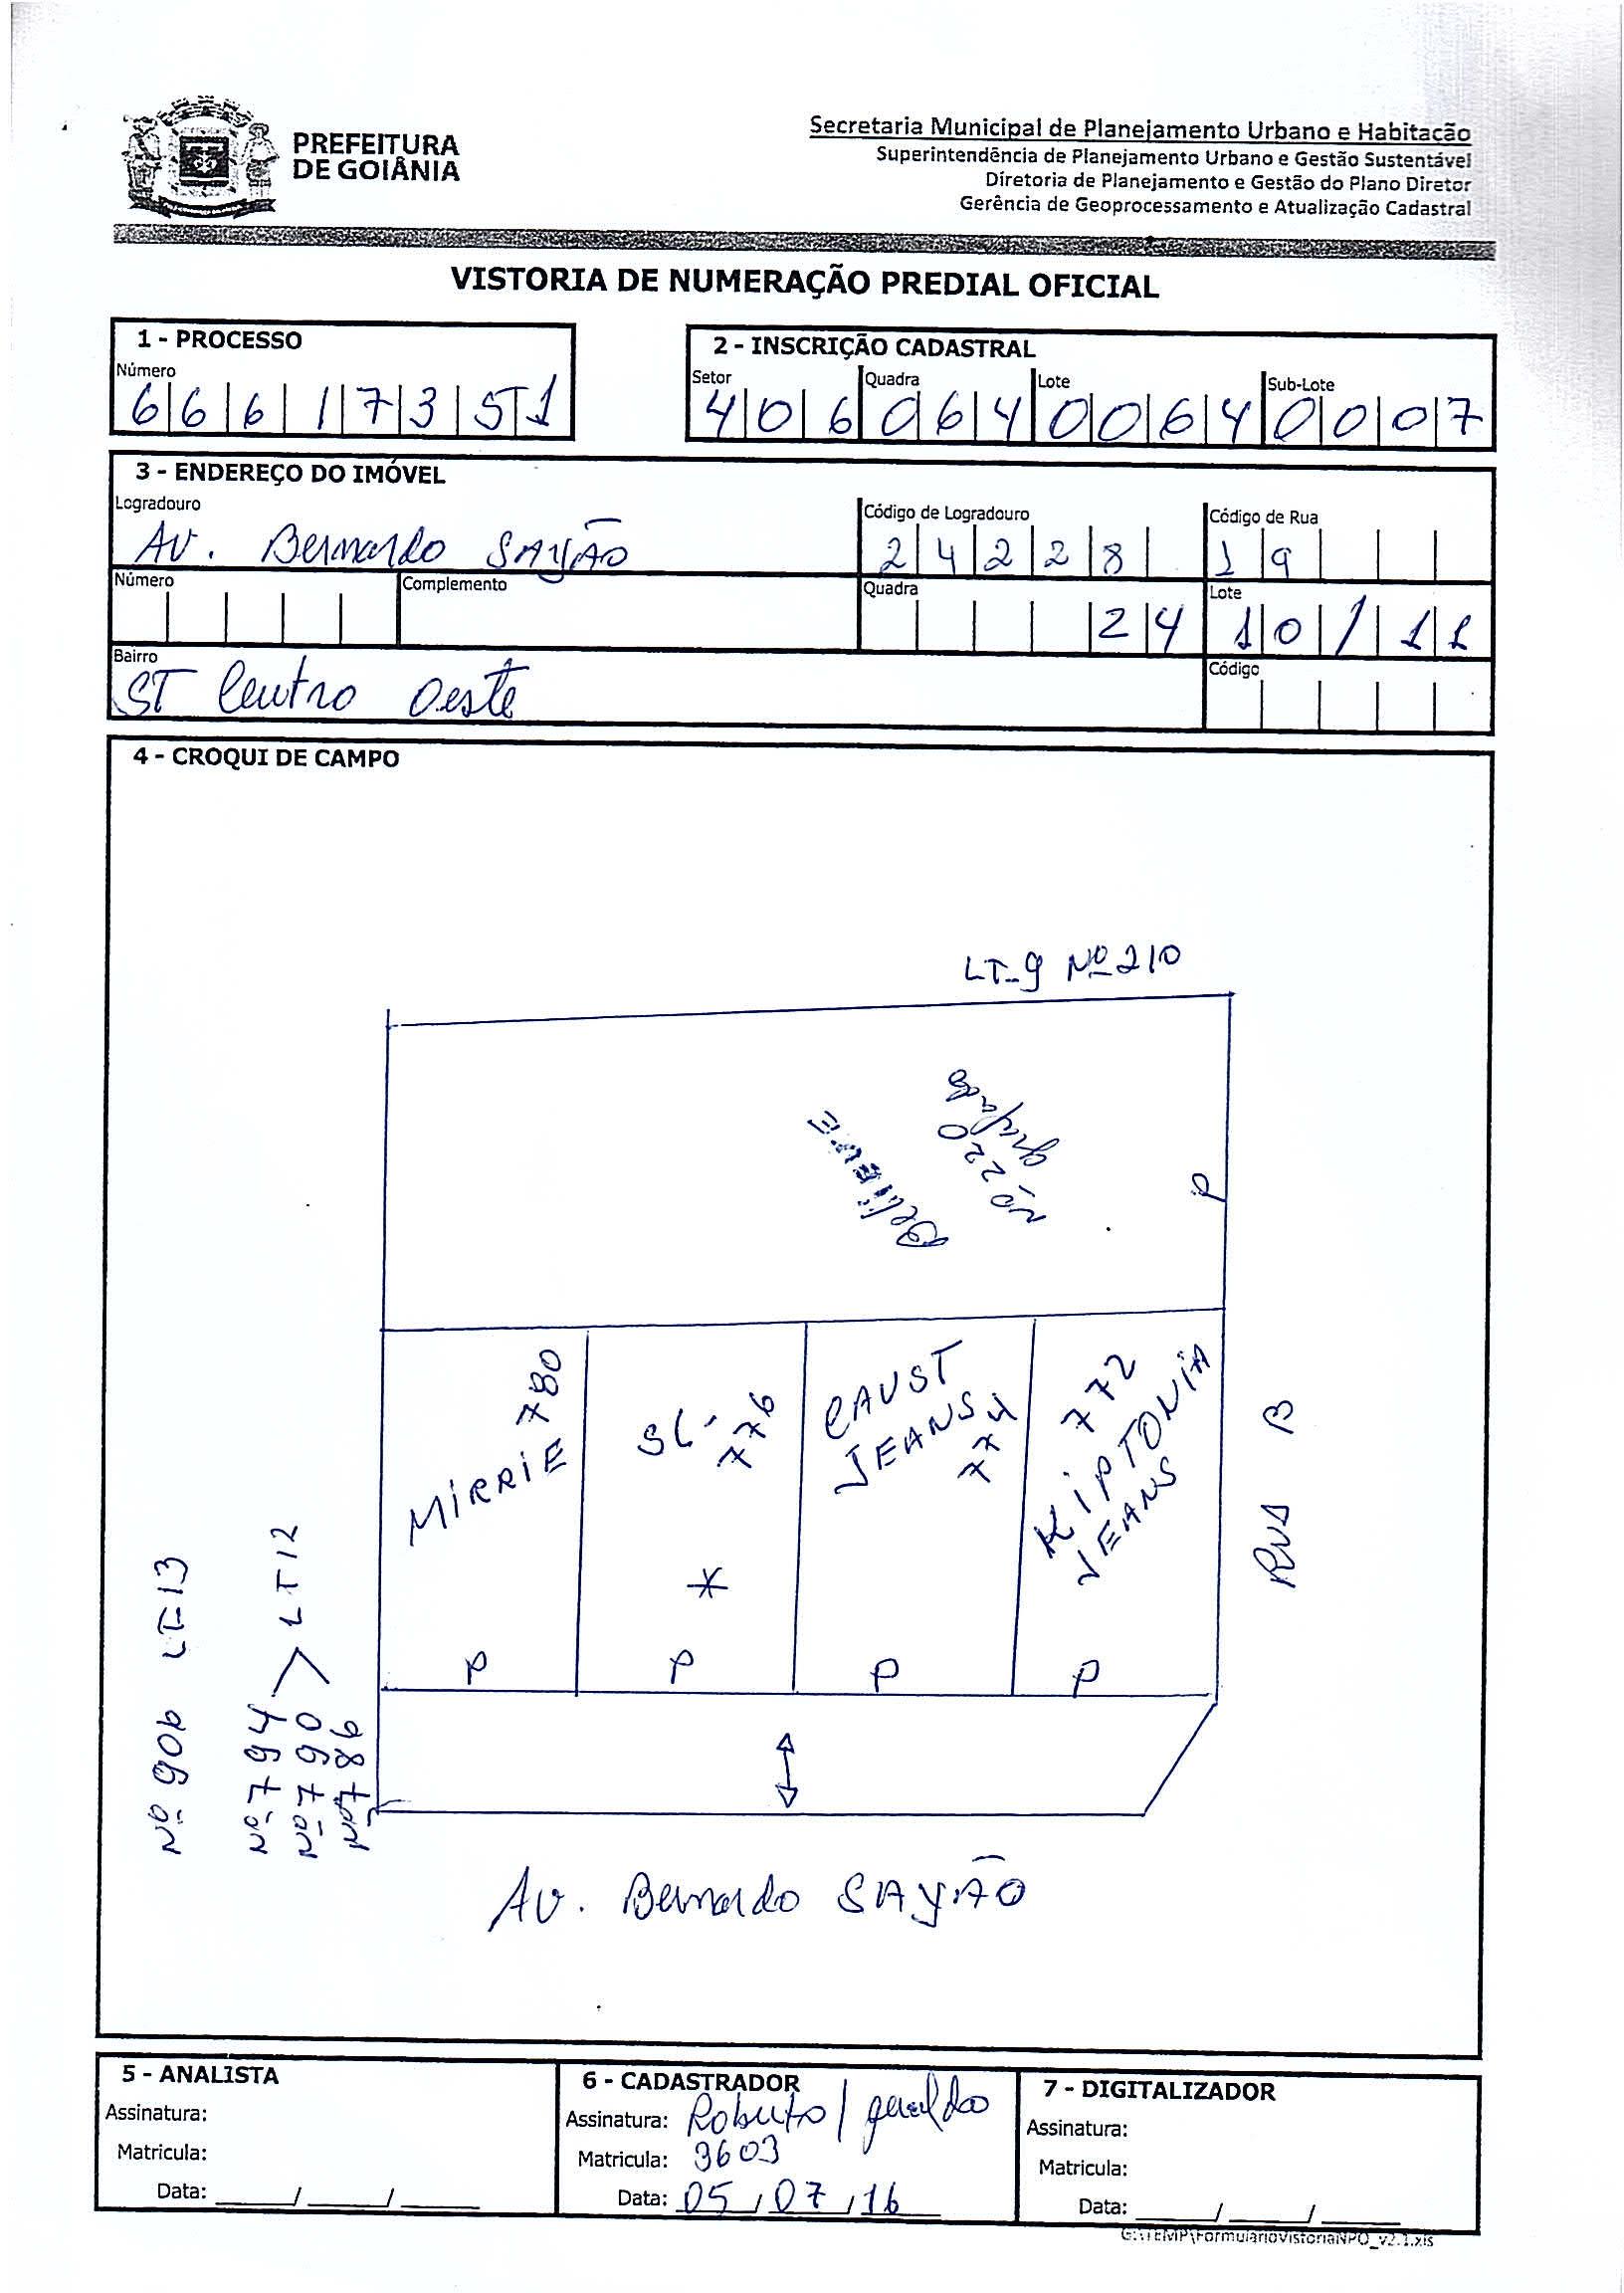 PREFEITURA
DE GOIÂNIA
Secretaria Municipal de Planejamento Urbano e Habitação
Superintendência de Planejamento Urbano e Gestão Sustentável
Diretoria de Planejamento e Gestão do Plano Diretor
Gerência de Geoprocessamento e Atualização Cadastral
VISTORIA DE NUMERAÇÃO PREDIAL OFICIAL
1 - PROCESSO
Número
6 6 6 1 7 3 5 1
2 - INSCRIÇÃO CADASTRAL
Setor Quadra Lote Sub-Lote
4 0 6 0 6 4 0 0 6 4 0 0 0 7
3 - ENDEREÇO DO IMÓVEL
Logradouro Código de Logradouro Código de Rua
Av. Bernardo SAYÃO 2 4 2 2 8 1 9
Número Complemento Quadra Lote
2 4 10/11
Bairro Código
ST Centro Oeste
4 - CROQUI DE CAMPO
LT-9 Nº 210
Nº 220
P
MIRRIE 780
SL- 776
CAUST
JEANS
774
772
KIPTONIA
JEANS
RUA B
*
P P P P
Nº 906 LT-13
Nº 794 > LT12
Nº 790
Nº 786
AV. Bernardo SAYÃO
5 - ANALISTA
Assinatura:
Matricula:
Data: ____/____/____
6 - CADASTRADOR
Assinatura: Roberto / geraldo
Matricula: 3603
Data: 05/07/16
7 - DIGITALIZADOR
Assinatura:
Matricula:
Data: ____/____/____
G:\TEMP\FormularioVistoriaNPO_v2.1.xls